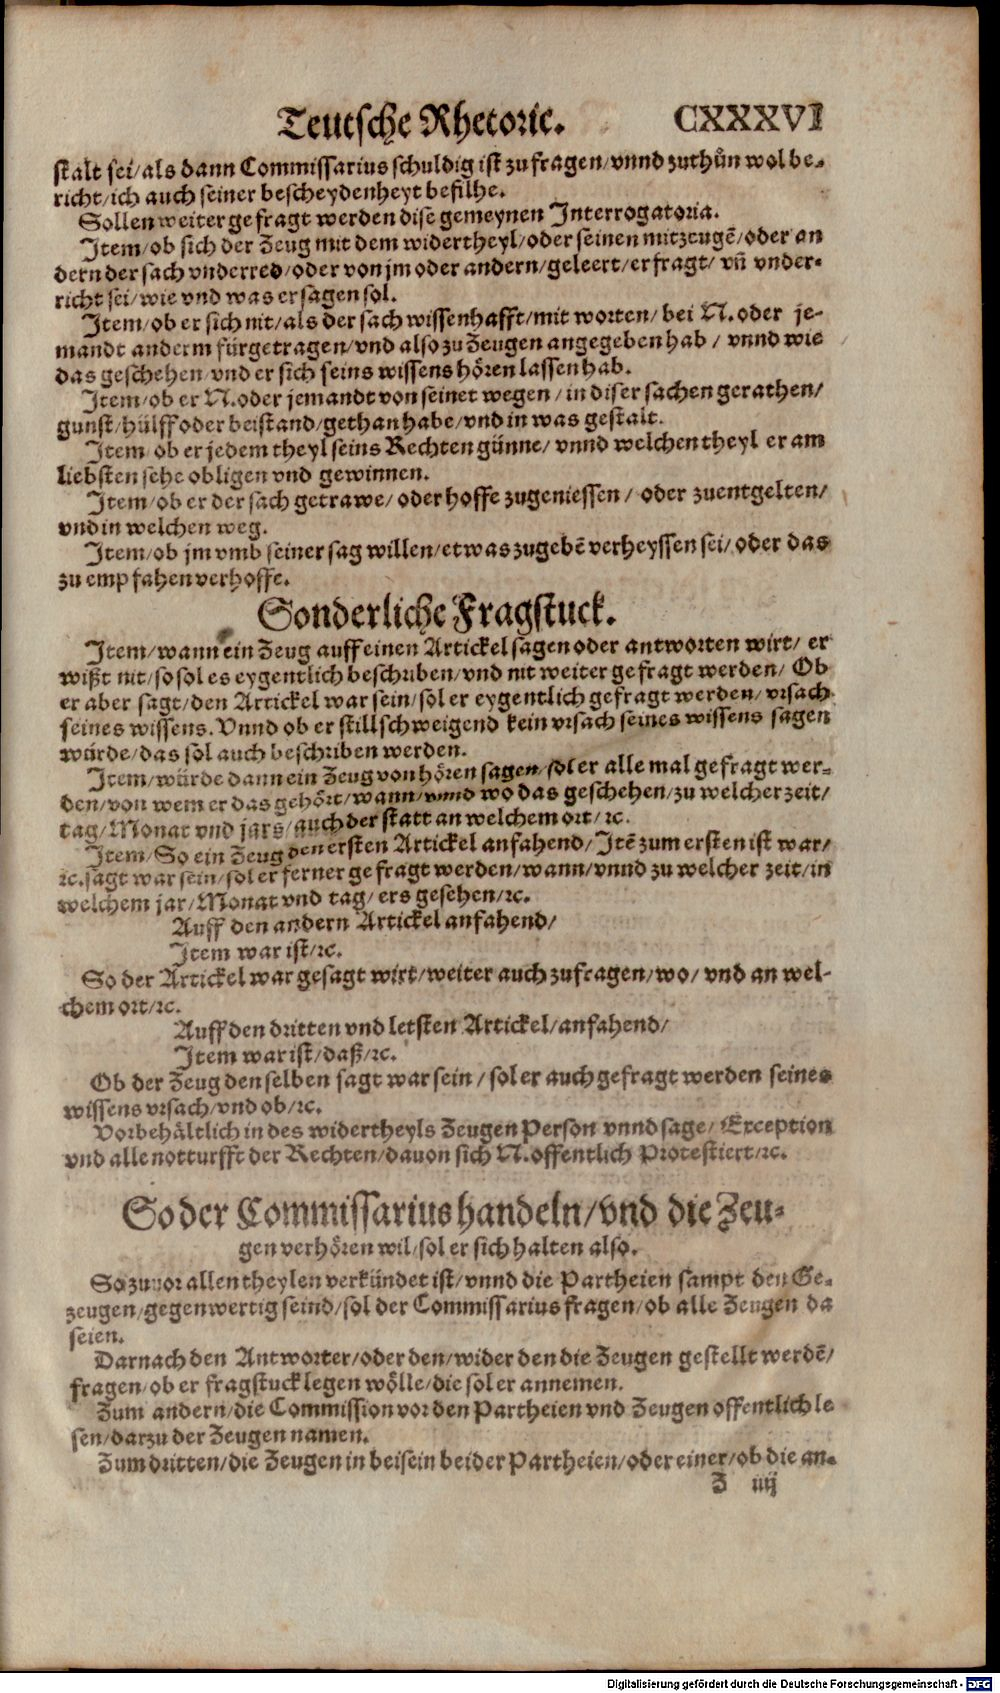 Teutsche Rhetoric. CXXXVI
stalt sei/als dann Commissarius schuldig ist zufragen/vnnd zuthůn wol be-
richt/ich auch seiner bescheydenheyt befilhe.
Sollen weiter gefragt werden dise gemeynen Interrogatoria.
Item/ob sich der Zeug mit dem widertheyl/oder seinen mitzeugẽ/oder an
dern der sach vnderred/oder von jm oder andern/geleert/erfragt/vñ vnder-
richt sei/wie vnd was er sagen sol.
Item/ob er sich nit/als der sach wissenhafft/mit worten/bei N. oder je-
mandt anderm fürgetragen/vnd also zu Zeugen angegeben hab/vnnd wie
das geschehen/vnd er sich seins wissens hören lassen hab.
Item/ob er N. oder jemandt von seinet wegen/in diser sachen gerathen/
gunst/hülff oder beistand/gethan habe/vnd in was gestalt.
Item/ob er jedem theyl seins Rechten günne/vnnd welchen theyl er am
liebsten sehe obligen vnd gewinnen.
Item/ob er der sach getrawe/oder hoffe zugeniessen/oder zuentgelten/
vnd in welchen weg.
Item/ob jm vmb seiner sag willen/etwas zugebẽ verheyssen sei/oder das
zu empfahen verhoffe.
Sonderliche Fragstuck.
Item/wann ein Zeug auff einen Artickel sagen oder antworten wirt/er
wißt nit/so sol es eygentlich beschriben/vnd nit weiter gefragt werden/Ob
er aber sagt/den Artickel war sein/sol er eygentlich gefragt werden/vrsach
seines wissens. Vnnd ob er stillschweigend kein vrsach seines wissens sagen
würde/das sol auch beschriben werden.
Item/würde dann ein Zeug von hören sagen/sol er alle mal gefragt wer-
den/von wem er das gehört/wann/vnnd wo das geschehen/zu welcher zeit/
tag/Monat vnd jars/auch der statt an welchem ort/ꝛc.
Item/So ein Zeug den ersten Artickel anfahend/Itẽ zum ersten ist war/
ꝛc. sagt war sein/sol er ferner gefragt werden/wann/vnnd zu welcher zeit/in
welchem jar/Monat vnd tag/ers gesehen/ꝛc.
Auff den andern Artickel anfahend/
Item war ist/ꝛc.
So der Artickel war gesagt wirt/weiter auch zufragen/wo/vnd an wel-
chem ort/ꝛc.
Auff den dritten vnd letsten Artickel/anfahend/
Item war ist/daß/ꝛc.
Ob der Zeug den selben sagt war sein/sol er auch gefragt werden seines
wissens vrsach/vnd ob/ꝛc.
Vorbehältlich in des widertheyls Zeugen Person vnnd sage/Exception
vnd alle notturfft der Rechten/dauon sich N. offentlich Protestiert/ꝛc.
So der Commissarius handeln/vnd die Zeu-
gen verhören wil/sol er sich halten also.
So zuuor allen theylen verkündet ist/vnnd die Partheien sampt den Ge-
zeugen/gegenwertig seind/sol der Commissarius fragen/ob alle Zeugen da
seien.
Darnach den Antworter/oder den/wider den die Zeugen gestellt werdẽ/
fragen/ob er fragstuck legen wölle/die sol er annemen.
Zum andern/die Commission vor den Partheien vnd Zeugen offentlich le
sen/darzu der Zeugen namen.
Zum dritten/die Zeugen in beisein beider Partheien/oder einer/ob die an-
Z iiij
Digitalisierung gefördert durch die Deutsche Forschungsgemeinschaft - DFG